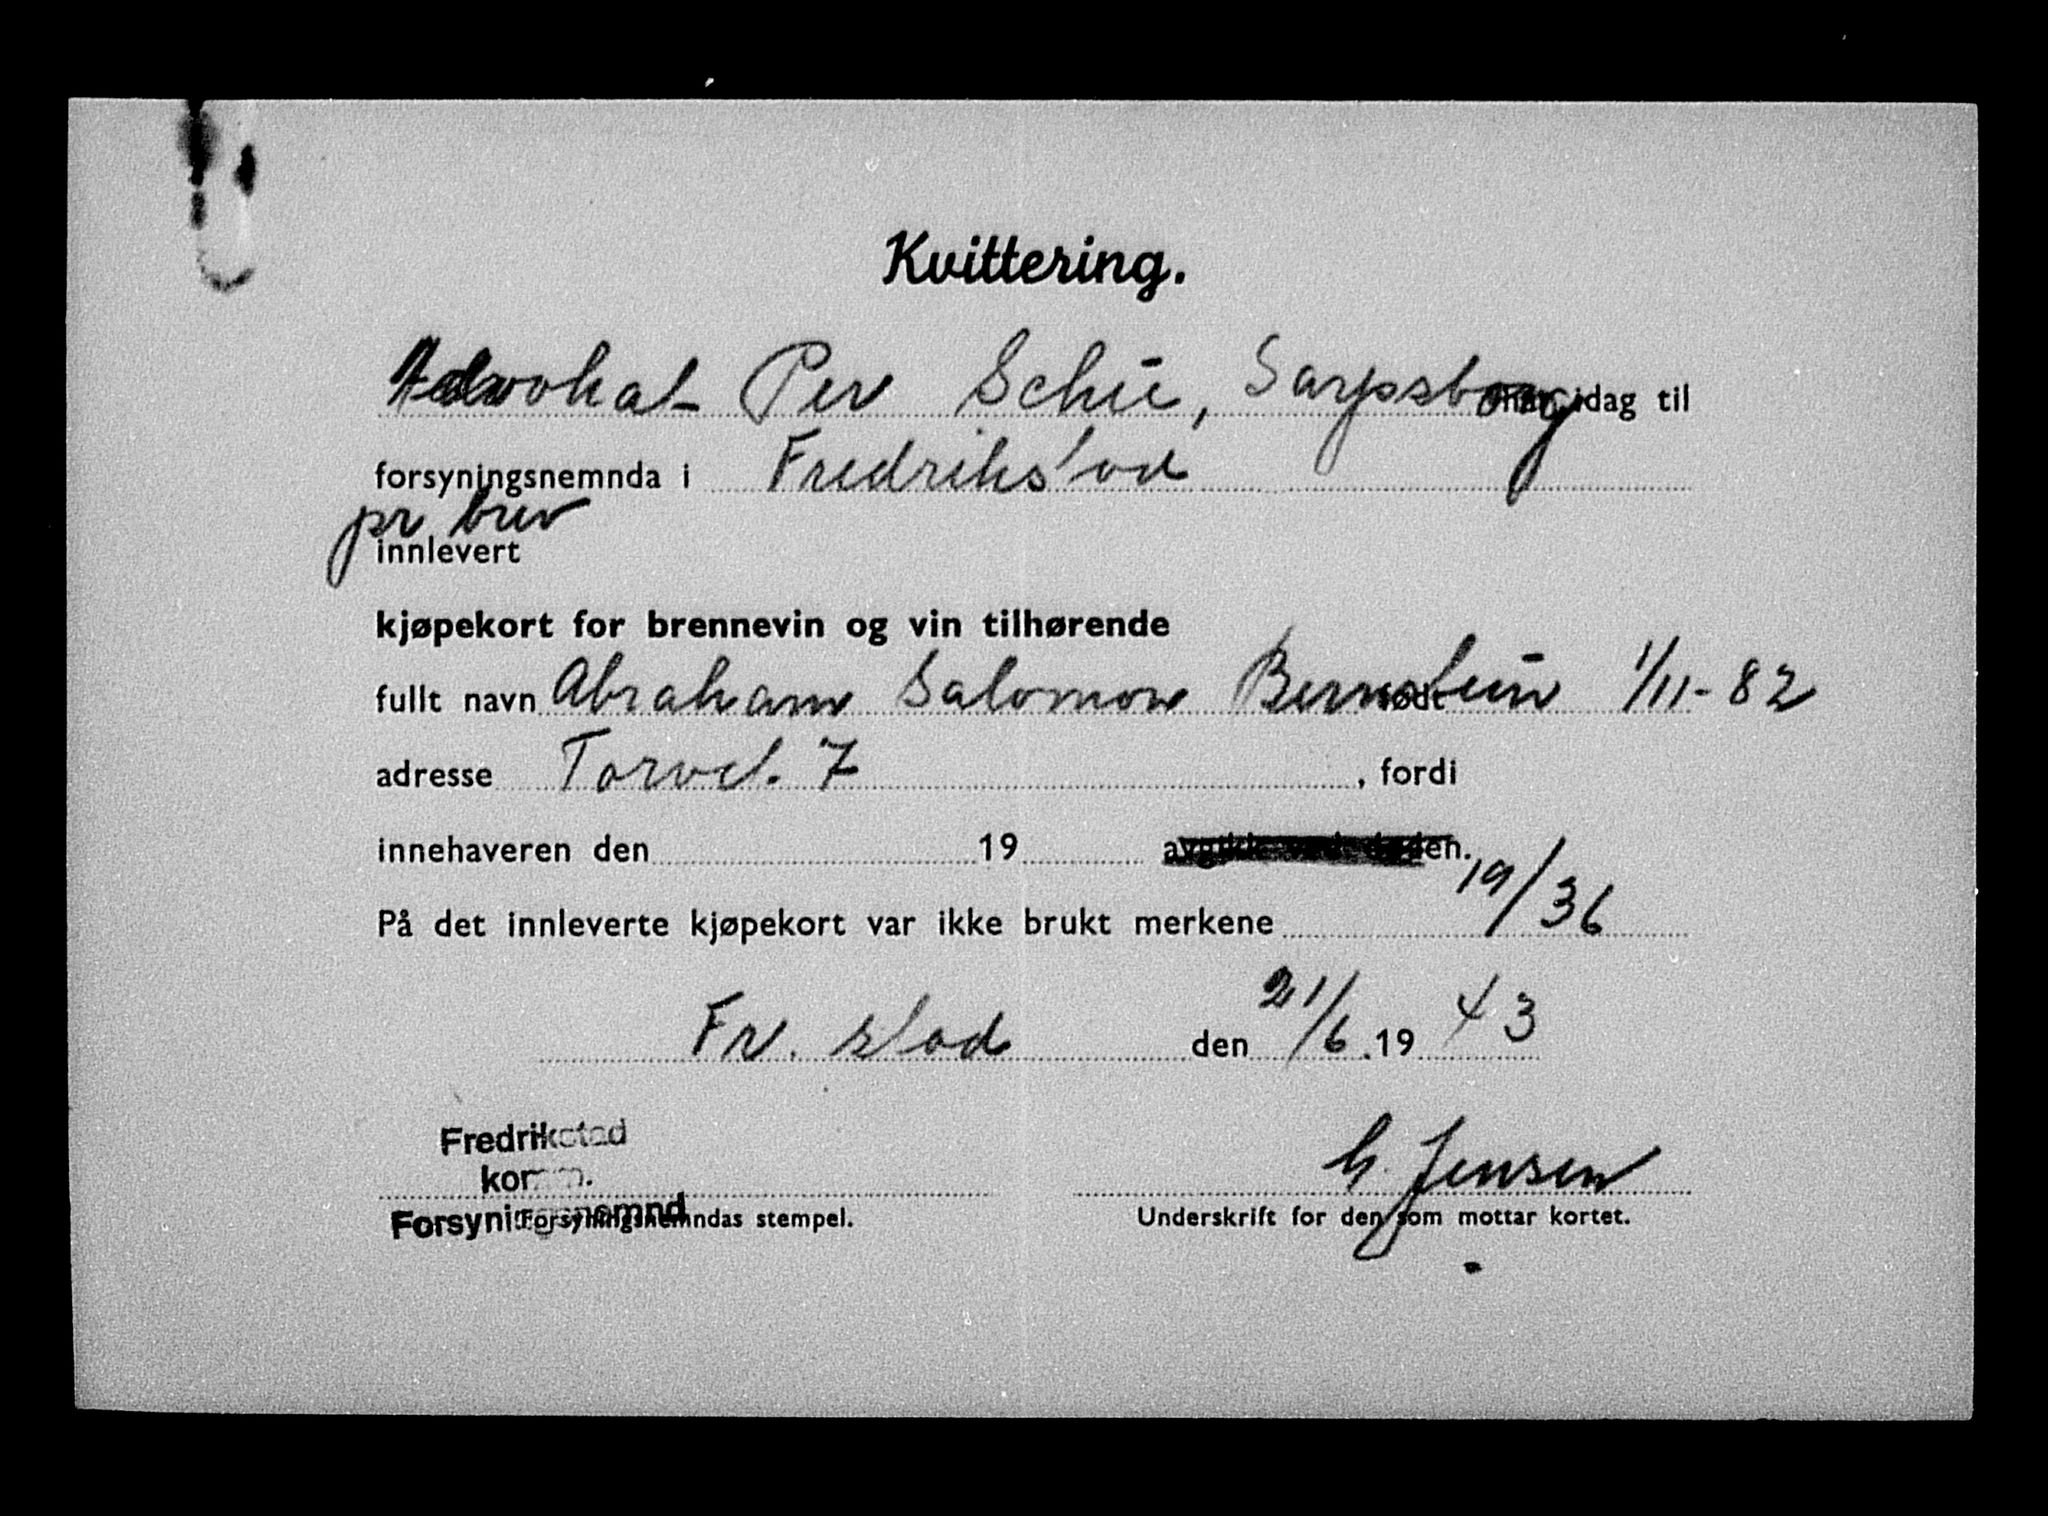 Kvittering.
Advokat Per Schie, Sarpsborg har idag til
forsyningsnemnda i Fredrikstad
pr brev
innlevert
kjøpekort for brennevin og vin tilhørende
fullt navn Abraham Salomon Bernstein født 1/11-82
adresse Torvet. 7, fordi
innehaveren den 19 avgikk ved døden.
På det innleverte kjøpekort var ikke brukt merkene 19/36
Fr. stad den 21/6.19 43
Fredrikstad
komm.
Forsyningsnemnd
G. Jensen
Forsyningsnemndas stempel.
Underskrift for den som mottar kortet.